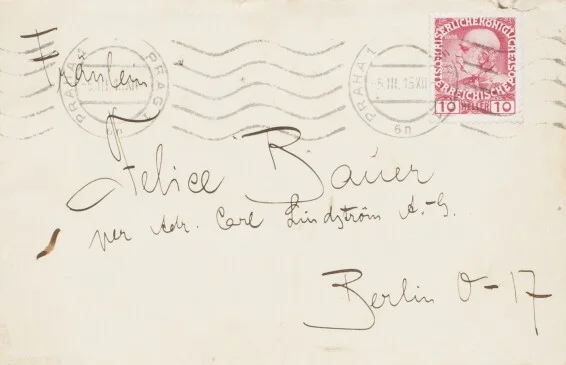 Fräulein
Felice Bauer
per Adr. Carl Lindström A.-G.
Berlin O-17
PRAHA 1 PRAG
PRAHA 1
5.III.15 XII
6n
1908
KAISERLICHE KÖNIGLICHE
ÖSTERREICHISCHE POST
10 HELLER 10